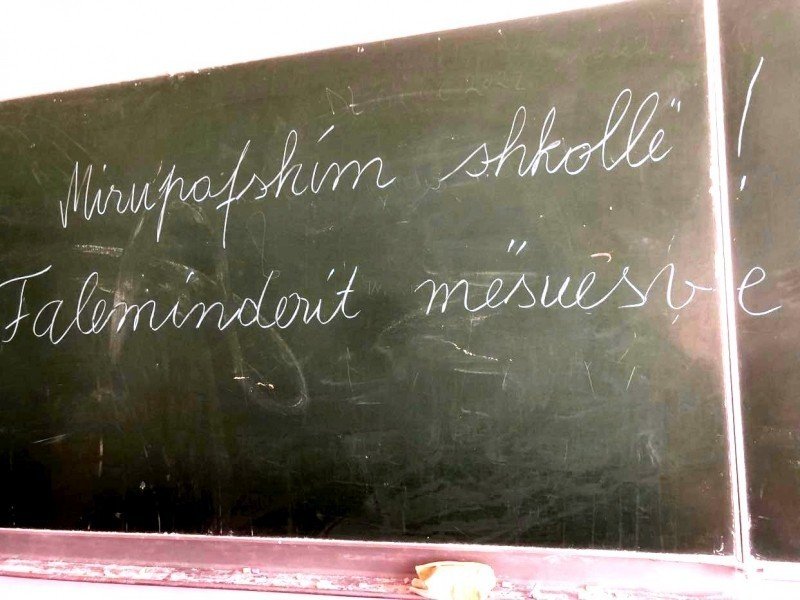 Mirupafshim shkollë !
Faleminderit mësuesve